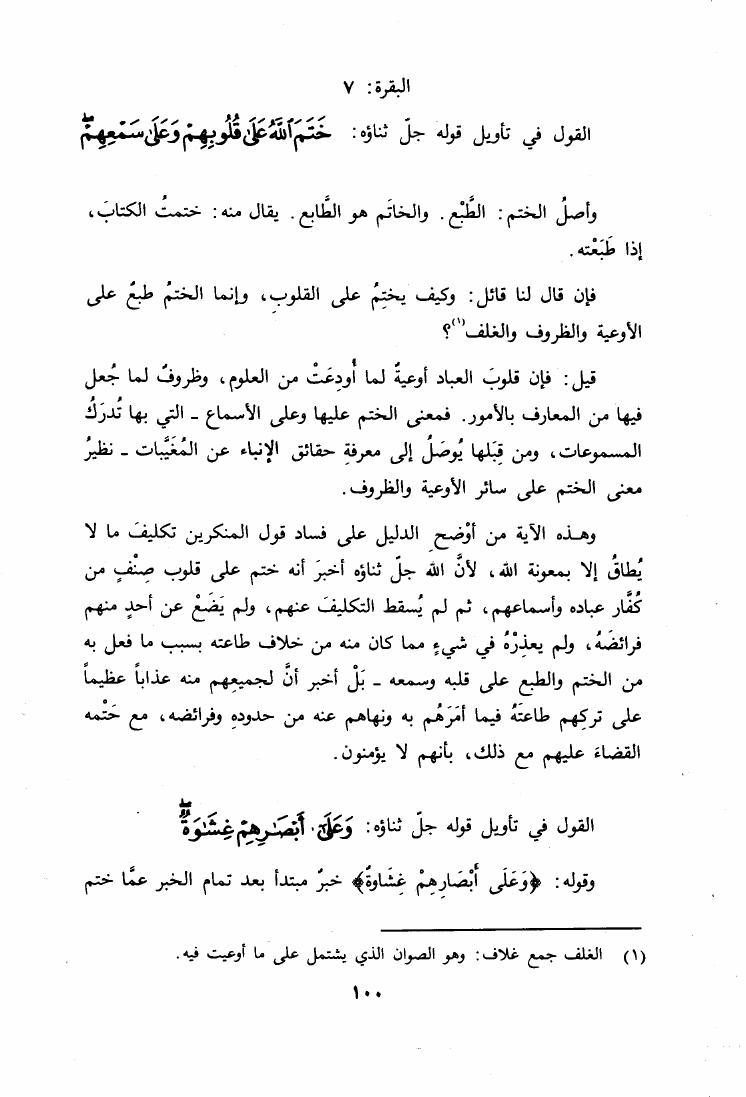 البقرة: ٧
القول في تأويل قوله جلّ ثناؤه: خَتَمَ ٱللَّهُ عَلَىٰ قُلُوبِهِمْ وَعَلَىٰ سَمْعِهِمْ ۖ
وأصلُ الختم: الطَّبْع. والخاتَم هو الطَّابع. يقال منه: ختمتُ الكتابَ،
إذا طَبَعْته.
فإن قال لنا قائل: وكيف يختِمُ على القلوبِ، وإنما الختمُ طبعٌ على
الأوعية والظروف والغلف(١)؟
قيل: فإن قلوبَ العباد أوعيةٌ لما أُودِعَتْ من العلوم، وظروفٌ لما جُعل
فيها من المعارف بالأمور. فمعنى الختم عليها وعلى الأسماع ـ التي بها تُدرَكُ
المسموعات، ومن قِبَلها يُوصَلُ إلى معرفةِ حقائق الإنباء عن المُغَيَّبات ـ نظيرُ
معنى الختم على سائر الأوعية والظروف.
وهذه الآية من أوْضح الدليل على فساد قول المنكرين تكليفَ ما لا
يُطاقُ إلا بمعونة الله، لأنَّ الله جلّ ثناؤه أخبرَ أنه ختم على قلوب صِنْفٍ من
كُفَّار عباده وأسماعهم، ثم لم يُسقط التكليفَ عنهم، ولم يَضَعْ عن أحدٍ منهم
فرائضَهُ، ولم يعذِرْهُ في شيءٍ مما كان منه من خلاف طاعته بسبب ما فعل به
من الختم والطبع على قلبه وسمعه ـ بَلْ أخبر أنَّ لجميعهم منه عذاباً عظيماً
على تركِهم طاعتَهُ فيما أمَرَهُم به ونهاهم عنه من حدودهِ وفرائضه، مع حَتْمه
القضاءَ عليهم مع ذلك، بأنهم لا يؤمنون.
القول في تأويل قوله جلّ ثناؤه: وَعَلَىٰٓ أَبْصَٰرِهِمْ غِشَٰوَةٌ ۖ
وقوله: ﴿وَعَلَى أَبْصَارِهِمْ غِشَاوَةٌ﴾ خبرٌ مبتدأ بعد تمام الخبر عمَّا ختم
(١) الغلف جمع غلاف: وهو الصوان الذي يشتمل على ما أوعيت فيه.
١٠٠